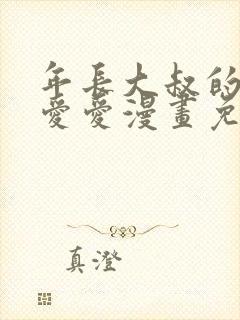 年長大叔的
愛愛漫畫免
真澄